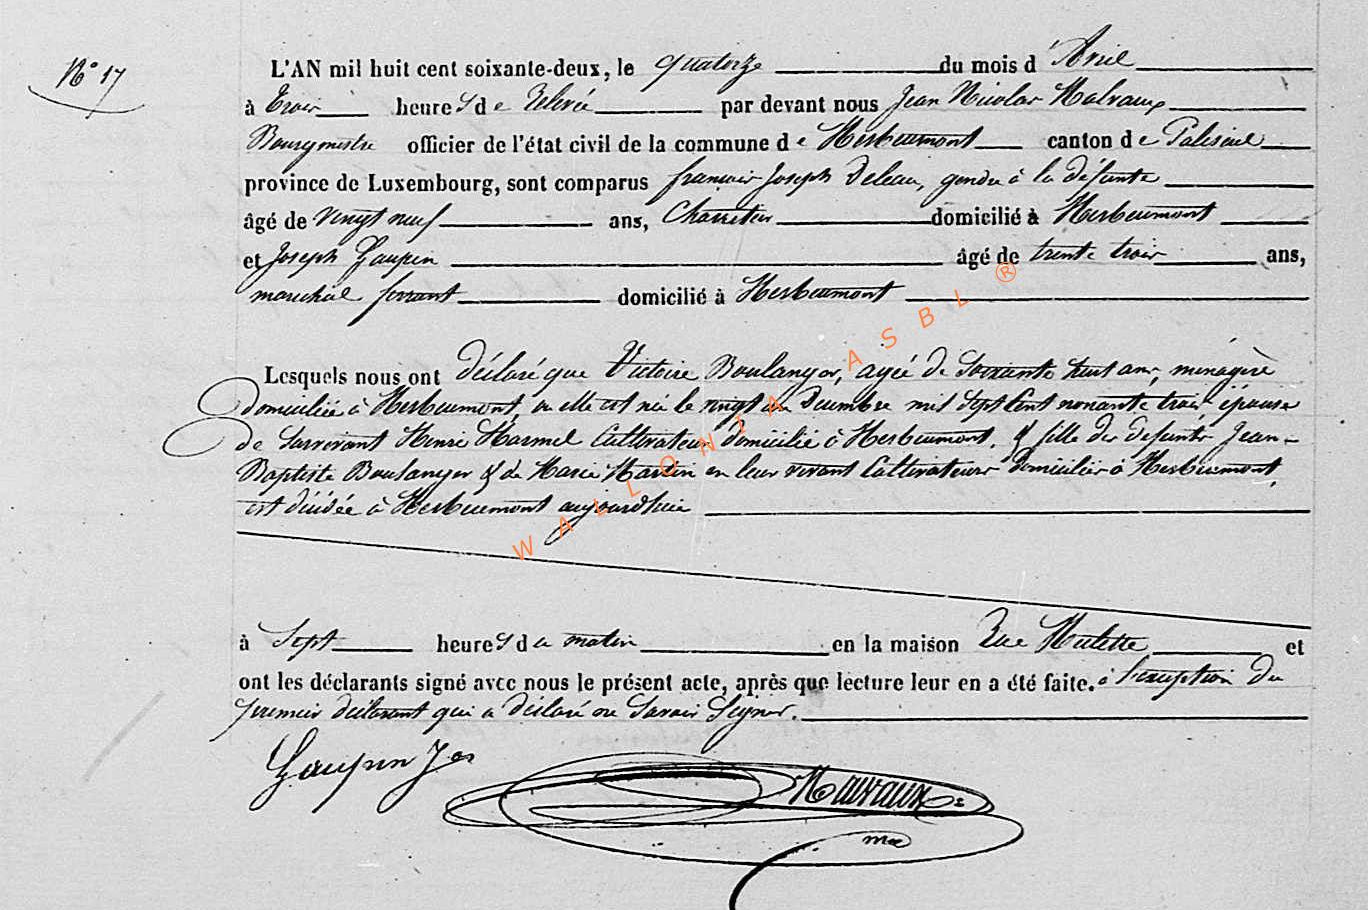 N° 17
L'AN mil huit cent soixante-deux, le quatorze du mois d'Avril
à trois heures de relevée par devant nous Jean Nicolas Malvaux
Bourgmestre officier de l'état civil de la commune de Herbeumont canton de Paliseul
province de Luxembourg, sont comparus françois Joseph Deleau, gendre à la défunte
âgé de vingt neuf ans, Charretier domicilié à Herbeumont
et Joseph Gaupin âgé de trente trois ans,
marechal ferrant domicilié à Herbeumont
Lesquels nous ont déclaré que Victoire Boulanger, agée de soixante huit ans, ménagère
domiciliée à Herbeumont, où elle est née le vingt un Décembre mil sept cent nonante trois, épouse
de survivant Henri Harmel Cultivateur domicilié à Herbeumont, & fille des defunts Jean-
Baptiste Boulanger & de Marie Martin en leur vivant Cultivateurs domiciliés à Herbeumont,
est décédée à Herbeumont aujourd'huie
à Sept heures du matin en la maison Rue Hulette et
ont les déclarants signé avec nous le présent acte, après que lecture leur en a été faite. à l'exception du
premier déclarant qui a déclaré ne Savoir Signer.
Gaupin Jos
Malvaux
WALLONIA ASBL ®